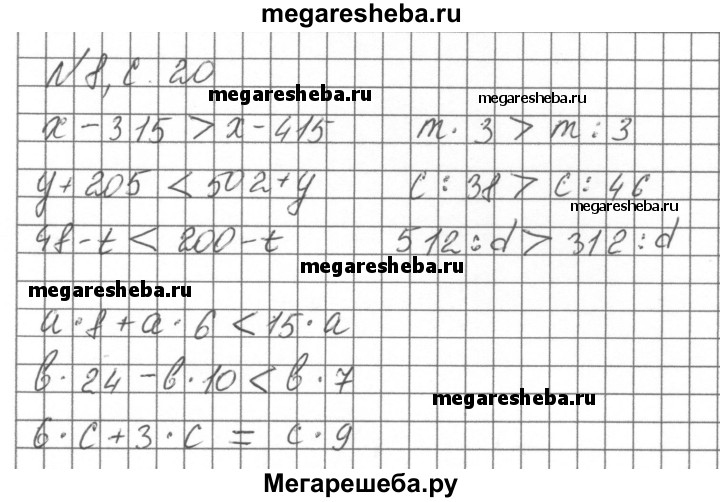 megaresheba.ru
№8, с. 20
megaresheba.ru
megaresheba.ru
x - 315 > x - 415 m · 3 > m : 3
y + 205 < 502 + y c : 38 > c : 46
megaresheba.ru
48 - t < 200 - t 512 : d > 312 : d
megaresheba.ru
megaresheba.ru
a · 8 + a · 6 < 15 · a
в · 24 - в · 10 < в · 7
megaresheba.ru
6 · c + 3 · c = c · 9
Мегарешеба.ру